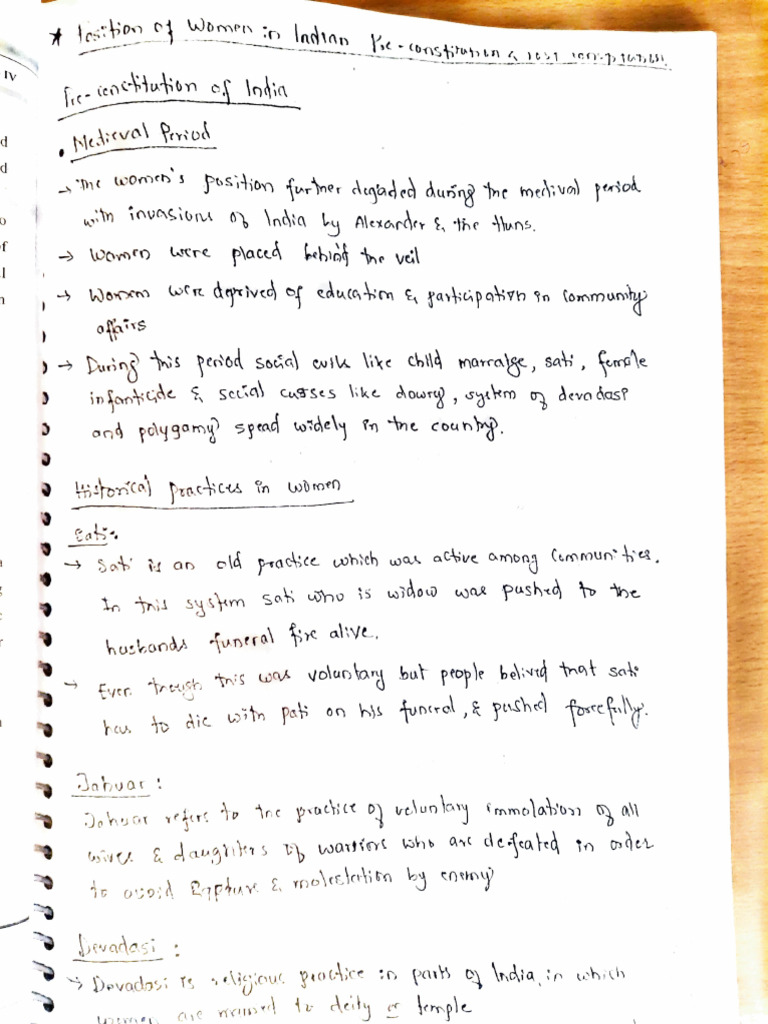 * Position of Women in Indian Pre-constitution & post
Pre-constitution of India
• Medieval Period
→ The women's position further degaded during the medival period
with invasions of India by Alexander & the Huns.
→ Women were placed behind the veil
→ Women were deprived of education & participation in community
affairs
→ During this period social evils like child marraige, sati, female
infanticide & social curses like dowry, system of devadasi
and polygamy spead widely in the country.
Historical practices in women
Sati:
→ Sati is an old practice which was active among communities.
In this system sati who is widow was pushed to the
husbands funeral fire alive.
→ Even though this was voluntary but people belived that sati
has to die with pati on his funeral, & pushed forcefully.
Jahuar:
Jahuar refers to the practice of voluntary immolation of all
wives & daughters of warriors who are defeated in order
to avoid capture & molestation by enemy
Devadasi:
→ Devadasi is religious practice in parts of India, in which
women are married to deity or temple
IV
d
d
o
of
l
n